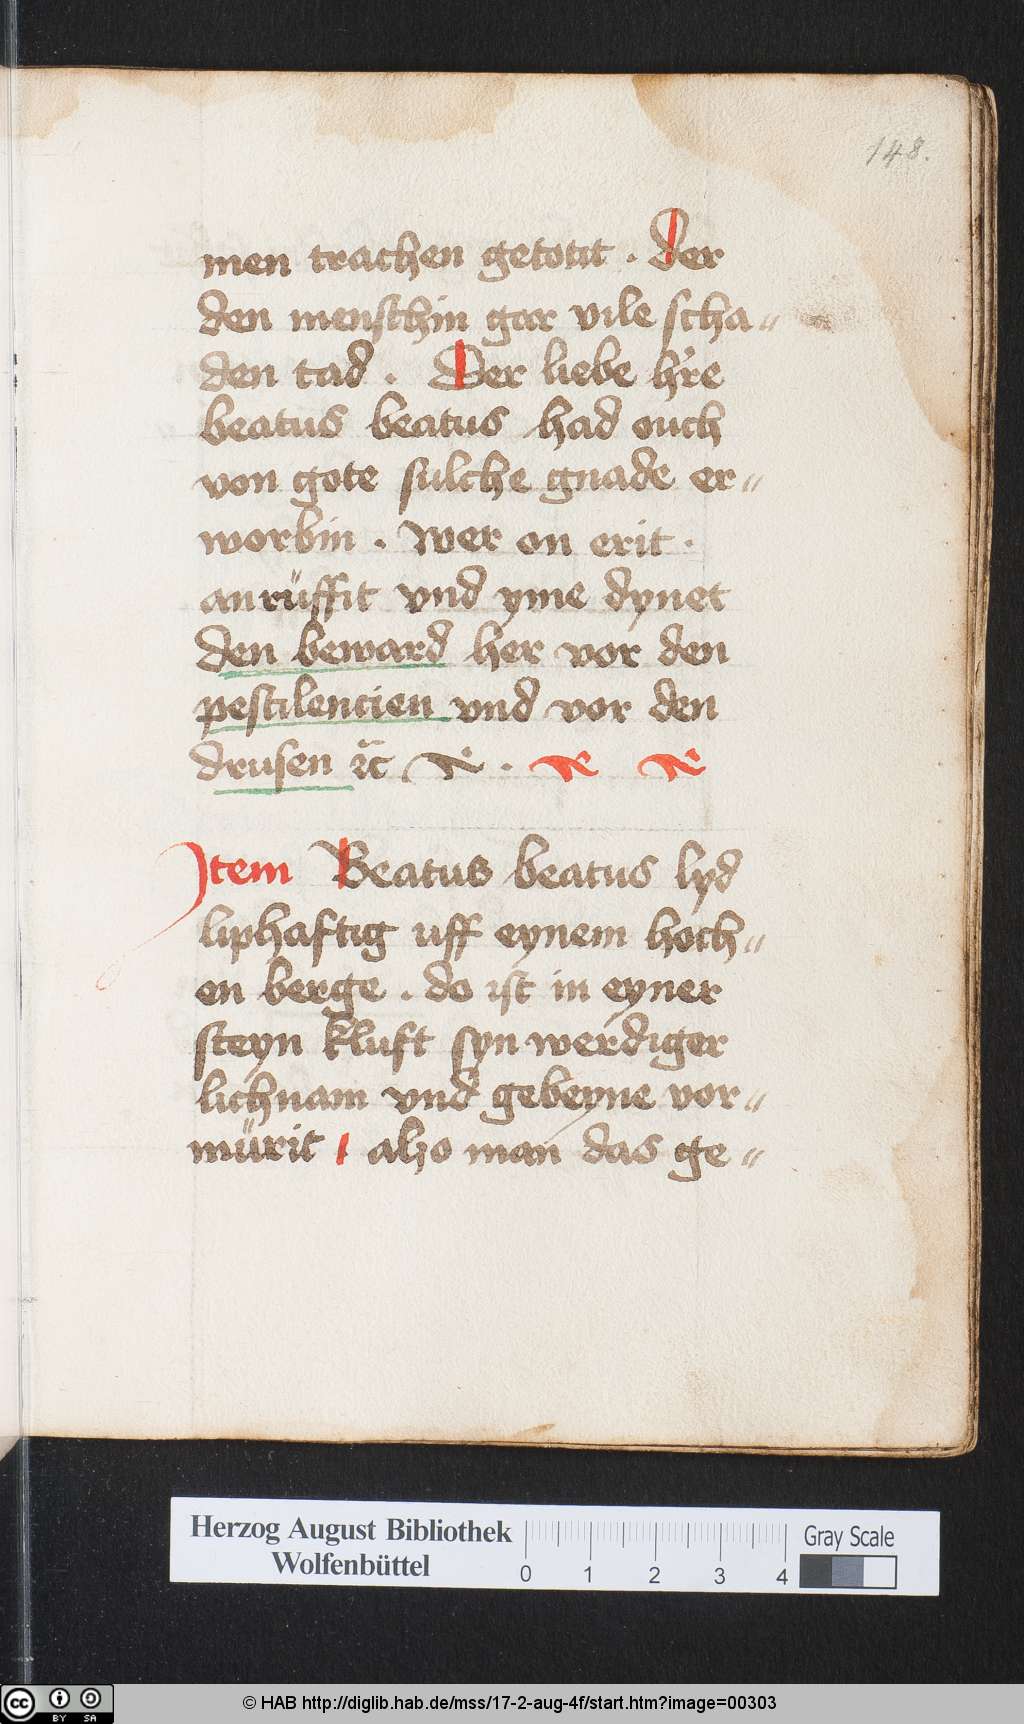 148.
men trachen getotit . Der
den menschin gar vile scha〃
den tad . Der liebe h're
beatus beatus had ouch
von gote sulche gnade er〃
worbin . Wer on erit .
anrüffit vnd yme dynet
den beward her vor den
pestilencien vnd vor den
drusen ꝛc
Item Beatus beatus lyd
liphaftig uff eynem hoch〃
en berge . do ist in eyner
steyn kluft syn werdiger
lichnam vnd gebeyne vor〃
mürit . alzo man das ge〃
Herzog August Bibliothek
Wolfenbüttel
0 1 2 3 4
Gray Scale
cc BY SA
© HAB http://diglib.hab.de/mss/17-2-aug-4f/start.htm?image=00303